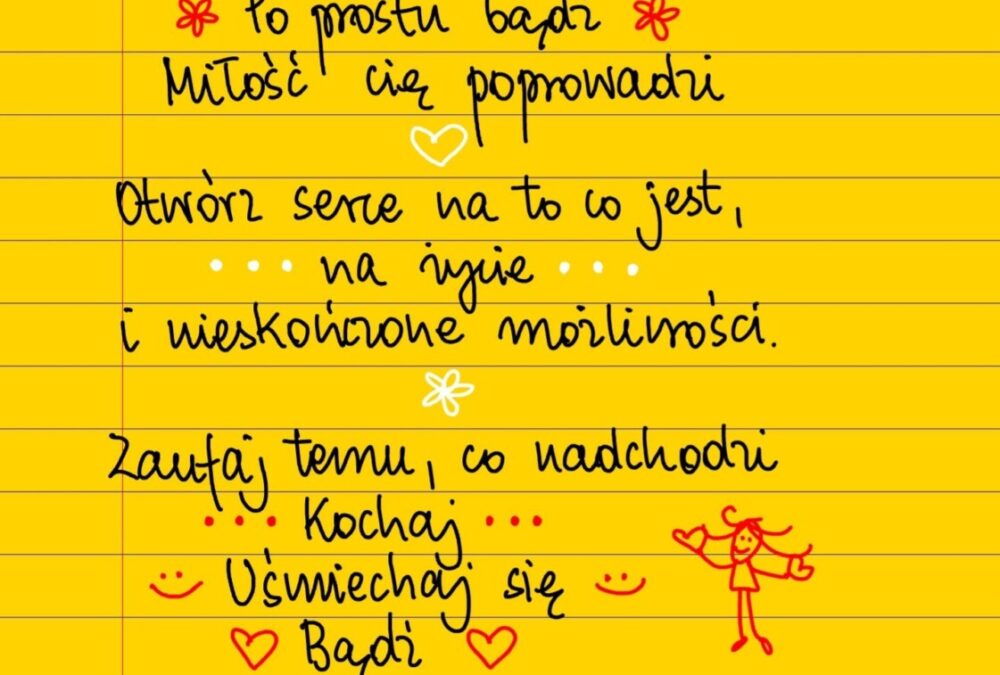 Po prostu bądź
Miłość cię poprowadzi
Otwórz serce na to co jest,
... na życie ...
i nieskończone możliwości.
Zaufaj temu, co nadchodzi
... Kochaj ...
Uśmiechaj się
Bądź